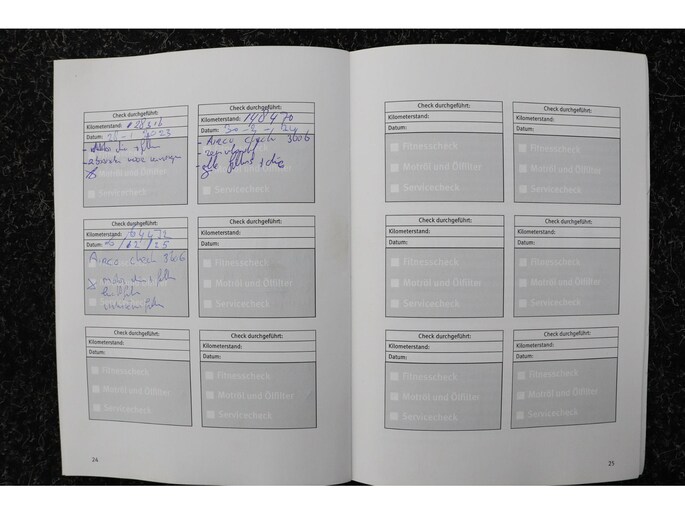 Check durchgeführt:
Kilometerstand: 128
Datum: 2023
Motoröl und Ölfilter
Servicecheck
Check durchgeführt:
Kilometerstand: 140470
Datum: 30-2-24
- Airco check 360b
Servicecheck
Check durchgeführt:
Kilometerstand: 64472
Datum: 6/02/25
Airco check 360b
Check durchgeführt:
Kilometerstand:
Datum:
Fitnesscheck
Motoröl und Ölfilter
Servicecheck
Check durchgeführt:
Kilometerstand:
Datum:
Fitnesscheck
Motoröl und Ölfilter
Servicecheck
Check durchgeführt:
Kilometerstand:
Datum:
Fitnesscheck
Motoröl und Ölfilter
Servicecheck
24
Check durchgeführt:
Kilometerstand:
Datum:
Fitnesscheck
Motoröl und Ölfilter
Servicecheck
Check durchgeführt:
Kilometerstand:
Datum:
Fitnesscheck
Motoröl und Ölfilter
Servicecheck
Check durchgeführt:
Kilometerstand:
Datum:
Fitnesscheck
Motoröl und Ölfilter
Servicecheck
Check durchgeführt:
Kilometerstand:
Datum:
Fitnesscheck
Motoröl und Ölfilter
Servicecheck
Check durchgeführt:
Kilometerstand:
Datum:
Fitnesscheck
Motoröl und Ölfilter
Servicecheck
Check durchgeführt:
Kilometerstand:
Datum:
Fitnesscheck
Motoröl und Ölfilter
Servicecheck
25